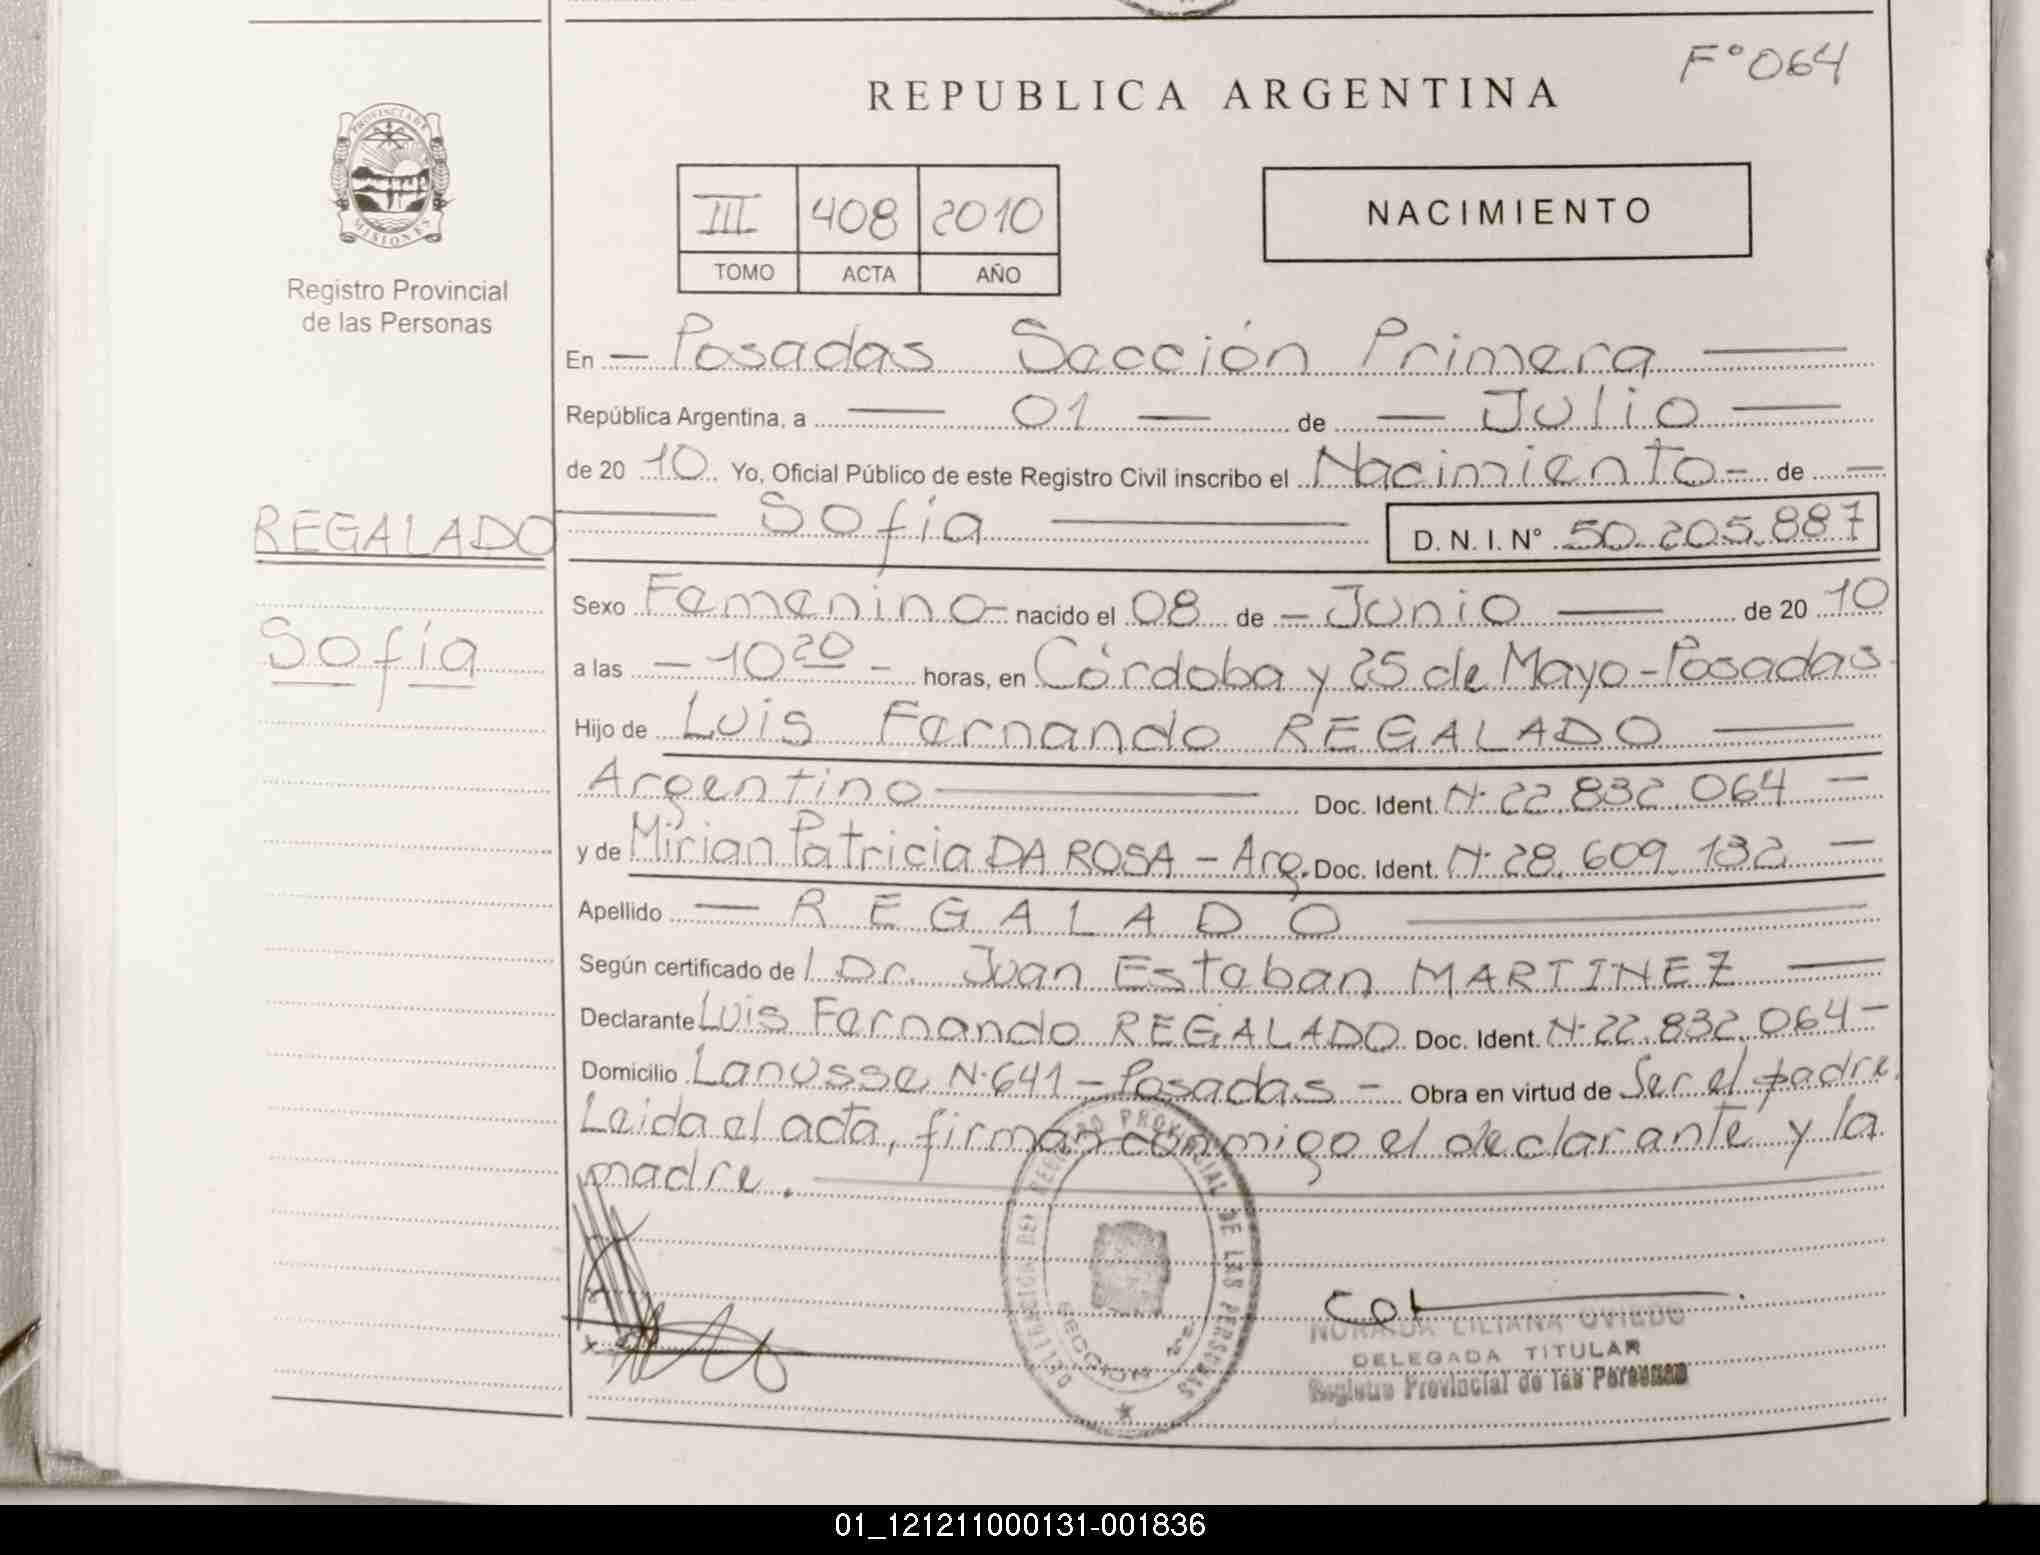 F° 064
REPUBLICA ARGENTINA
PROVINCIA DE
MISIONES
Registro Provincial
de las Personas
III 408 2010
TOMO ACTA AÑO
NACIMIENTO
En — Posadas Sección Primera —
República Argentina, a — 01 — de — Julio —
de 20 10. Yo, Oficial Público de este Registro Civil inscribo el Nacimiento - de —
REGALADO
— Sofía — D. N. I. N° 50.205.887
Sexo Femenino - nacido el 08 de — Junio — de 20 10
Sofía
a las — 10 20 - horas, en Córdoba y 25 de Mayo - Posadas -
Hijo de Luis Fernando REGALADO —
Argentino — Doc. Ident. N· 22.832.064 —
y de Mirian Patricia DA ROSA - Arg. Doc. Ident. N· 28.609.132 —
Apellido — REGALADO —
Según certificado de l Dr. Juan Esteban MARTINEZ —
Declarante Luis Fernando REGALADO Doc. Ident. N· 22.832.064 —
Domicilio Lanusse N· 641 - Posadas - Obra en virtud de Ser el padre.
Leida el acta, firman conmigo el declarante y la
madre. —
DELEGACION DEL REGISTRO PROVINCIAL DE LAS PERSONAS
SECCION 1ra
LILIANA OVIEDO
DELEGADA TITULAR
Registro Provincial de las Personas
01_121211000131-001836